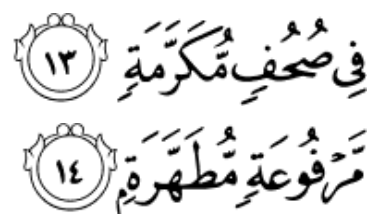 فِي صُحُفٍ مُّكَرَّمَةٍ ١٣
مَّرْفُوعَةٍ مُّطَهَّرَةٍۭ ١٤